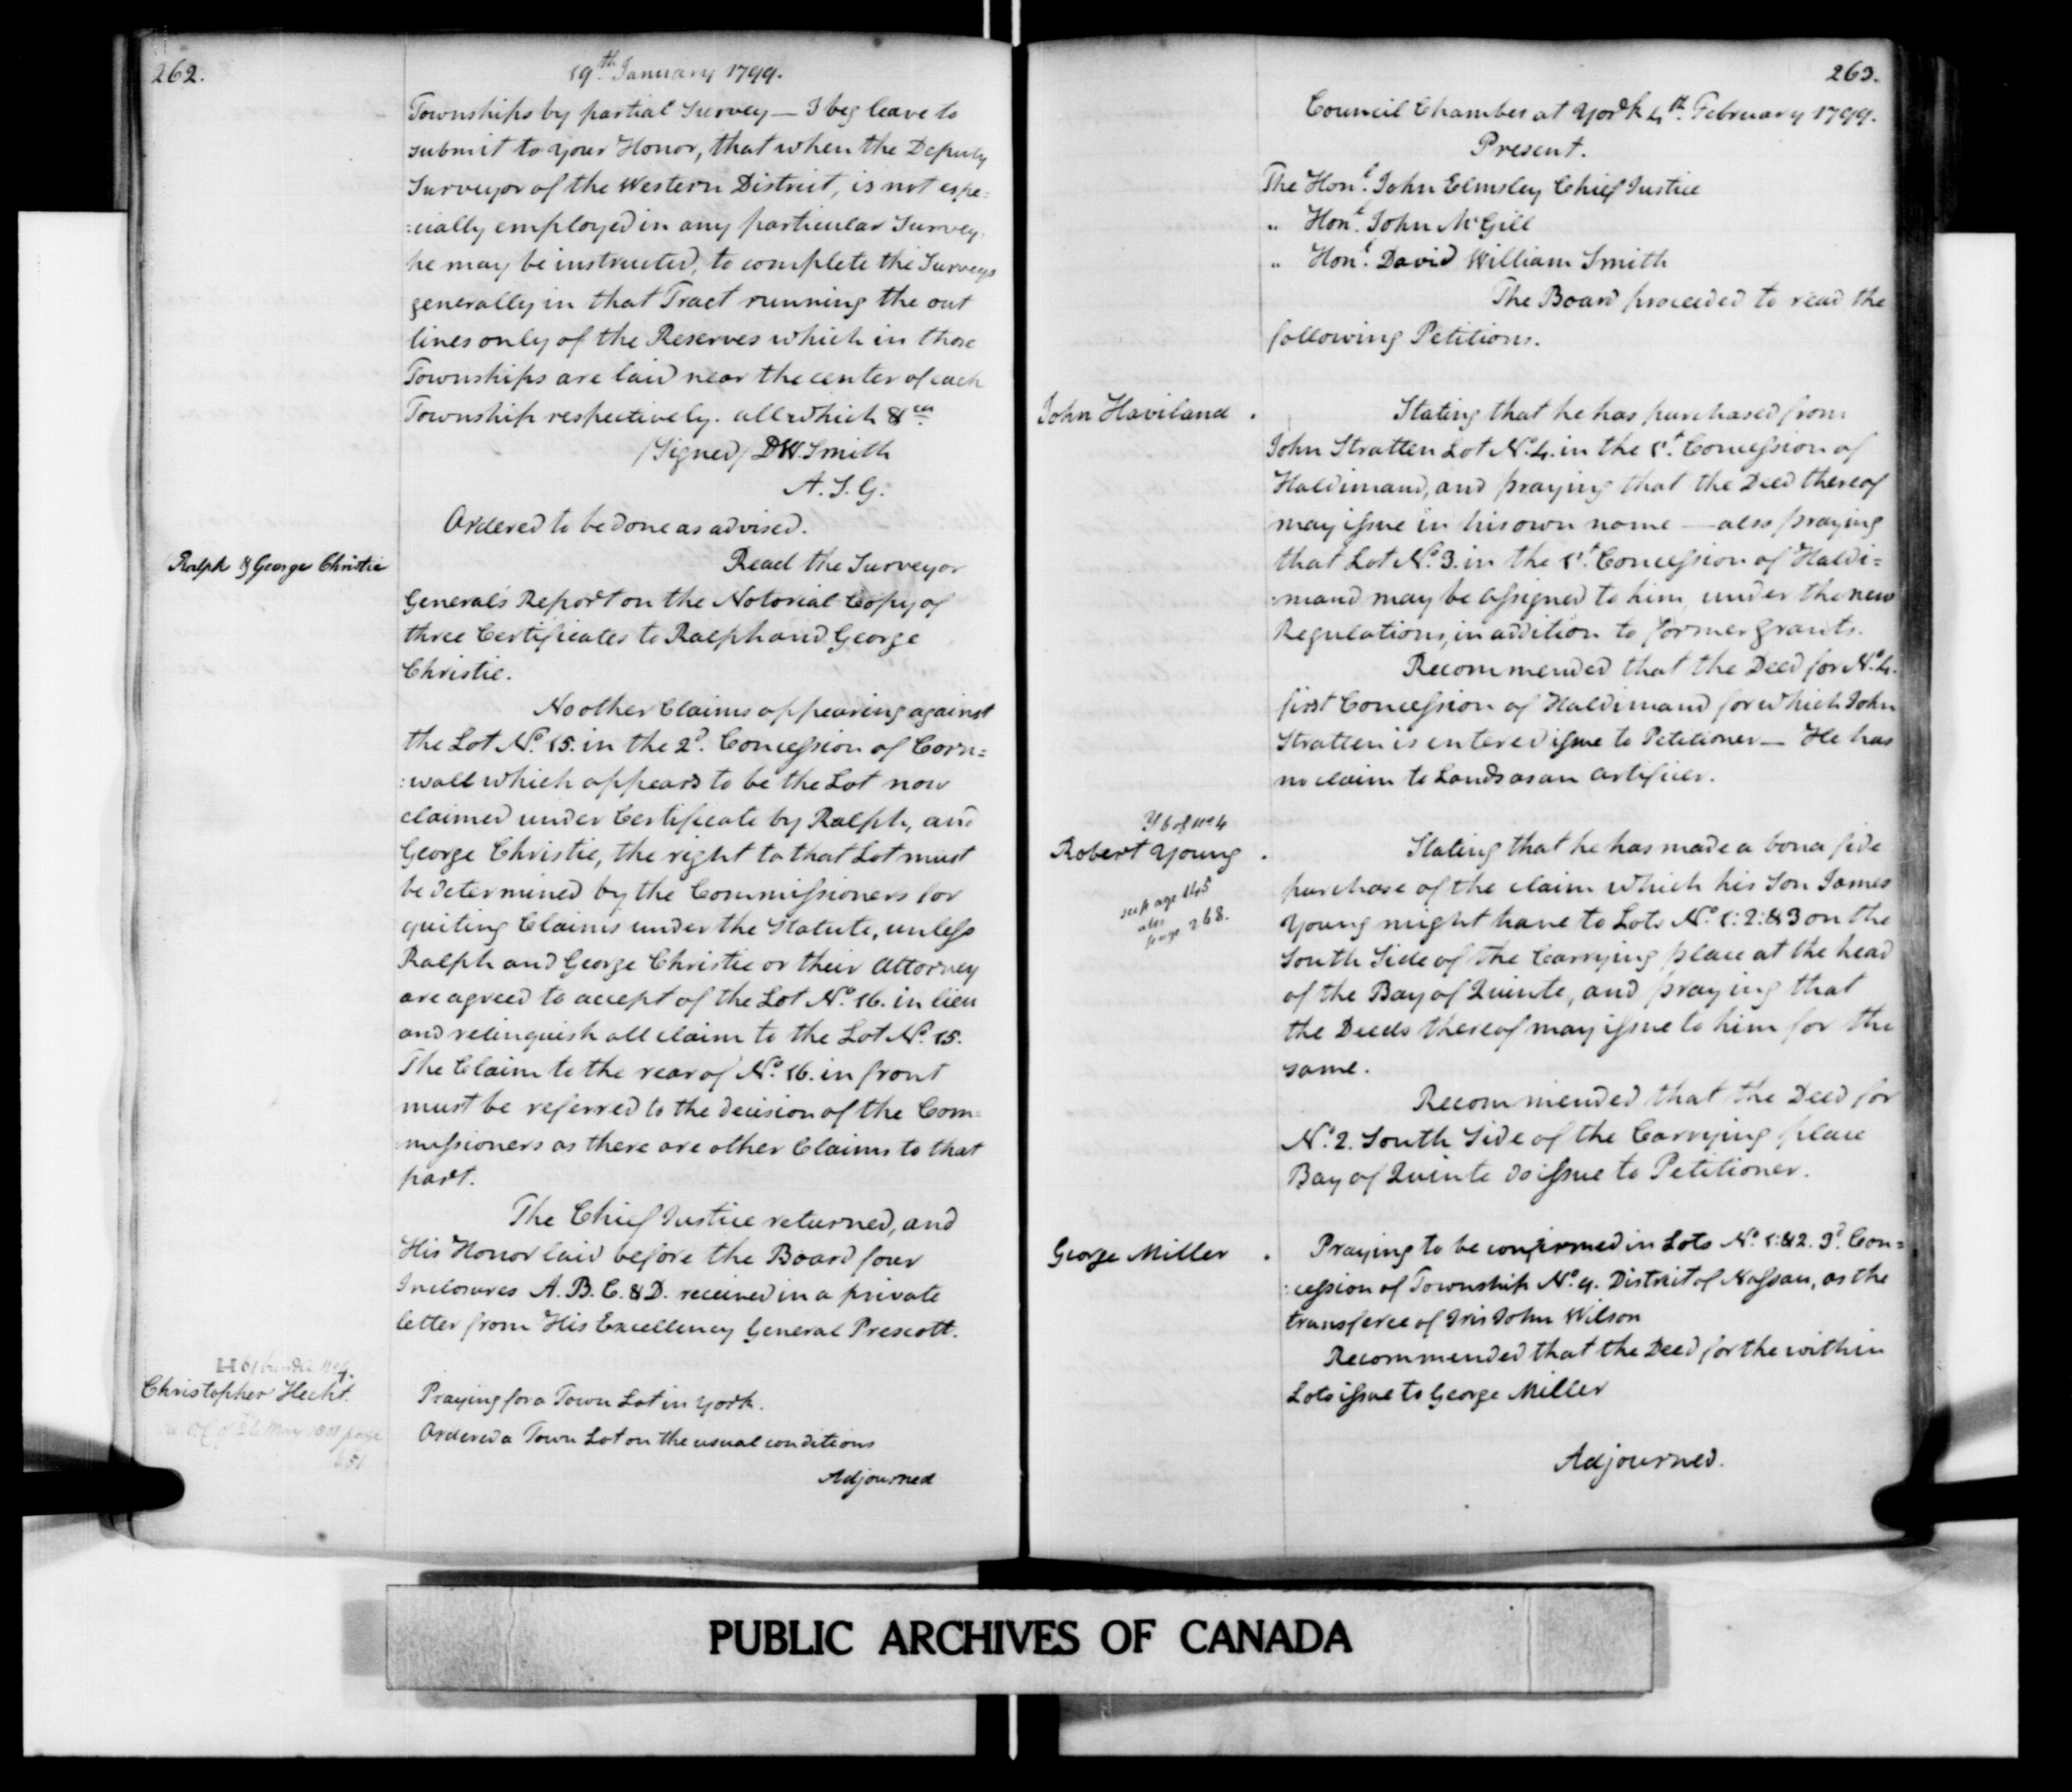 262.
19th January 1799.
Townships by partial Survey — I beg leave to
submit to your Honor, that when the Deputy
Surveyor of the Western District, is not espe=
:cially employed in any particular Survey,
he may be instructed, to complete the Surveys
generally in that Tract running the out
lines only of the Reserves which in those
Townships are laid near the center of each
Township respectively. all which &ca
/Signed/ D W. Smith
A. S. G.
Ordered to be done as advised.
Ralph & George Christie
Read the Surveyor
General's Report on the Notorial Copy of
three Certificates to Ralph and George
Christie.
No other Claims appearing against
the Lot No. 15. in the 2d. Concession of Corn=
:wall which appears to be the Lot now
claimed under Certificate by Ralph, and
George Christie, the right to that Lot must
be determined by the Commissioners for
quiting Claims under the Statute, unless
Ralph and George Christie or their Attorney
are agreed to accept of the Lot No. 16. in lieu
and relinquish all claim to the Lot No. 15.
The Claim to the rear of No. 16. in front
must be referred to the decision of the Com=
:missioners as there are other Claims to that
part.
The Chief Justice returned, and
His Honor laid before the Board four
Inclosures A. B. C. & D. received in a private
letter from His Excellency General Prescott.
Christopher Hecht.
Praying for a Town Lot in York.
Ordered a Town Lot on the usual conditions
Adjourned
263.
Council Chamber at York 4th. February 1799.
Present.
The Honl. John Elmsley Chief Justice
" Honl. John McGill
" Honl. David William Smith
The Board proceeded to read the
following Petitions.
John Haviland.
Stating that he has purchased from
John Stratten Lot No. 4. in the 1st. Concession of
Haldimand, and praying that the Deed thereof
may issue in his own name — also praying
that Lot No. 3. in the 1st. Concession of Haldi=
:mand may be assigned to him, under the new
Regulations, in addition to former grants.
Recommended that the Deed for No. 4.
first Concession of Haldimand for which John
Stratten is entered issue to Petitioner — He has
no claim to Lands as an artificer.
Y 6 of no 4
Robert Young.
see page 145
also
page 268.
Stating that he has made a bona fide
purchase of the claim which his Son James
Young might have to Lots No. 1: 2: & 3 on the
South Side of the Carrying place at the head
of the Bay of Quinte, and praying that
the Deeds thereof may issue to him for the
same.
Recommended that the Deed for
No. 2. South Side of the Carrying place
Bay of Quinte do issue to Petitioner.
George Miller.
Praying to be confirmed in Lots No. 1: & 2. 3d. Con=
:cession of Township No. 9. District of Nassau, as the
transferee of Iris John Wilson
Recommended that the Deed for the within
Lots issue to George Miller
Adjourned.
PUBLIC ARCHIVES OF CANADA